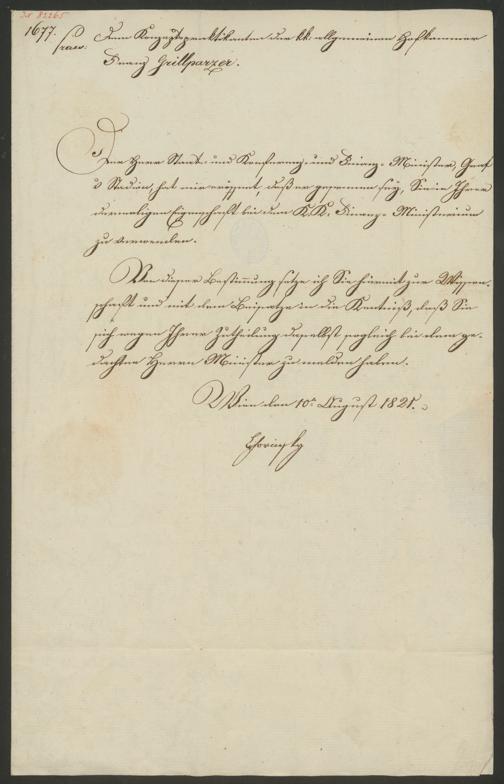 1677.
Dem Konzeptspraktikanten der kk. allgemeinen Hofkammer
Franz Grillparzer.
Der Herr Staats- und Konferenz- und Finanz-Minister, Graf
v Stadion, hat mir eröffnet, daß er gesonnen sey, Sie in Ihrer
dermaligen Eigenschaft bei dem K.K. Finanz-Ministerium
zu verwenden.
Von dieser Bestimmung setze ich Sie hiermit zur Wissen-
schaft und mit dem Beisatze in die Kentniß, daß Sie
sich wegen Ihrer Zutheilung daselbst sogleich bei dem ge-
dachten Herrn Minister zu melden haben.
Wien den 10. August 1821.
Chorinsky